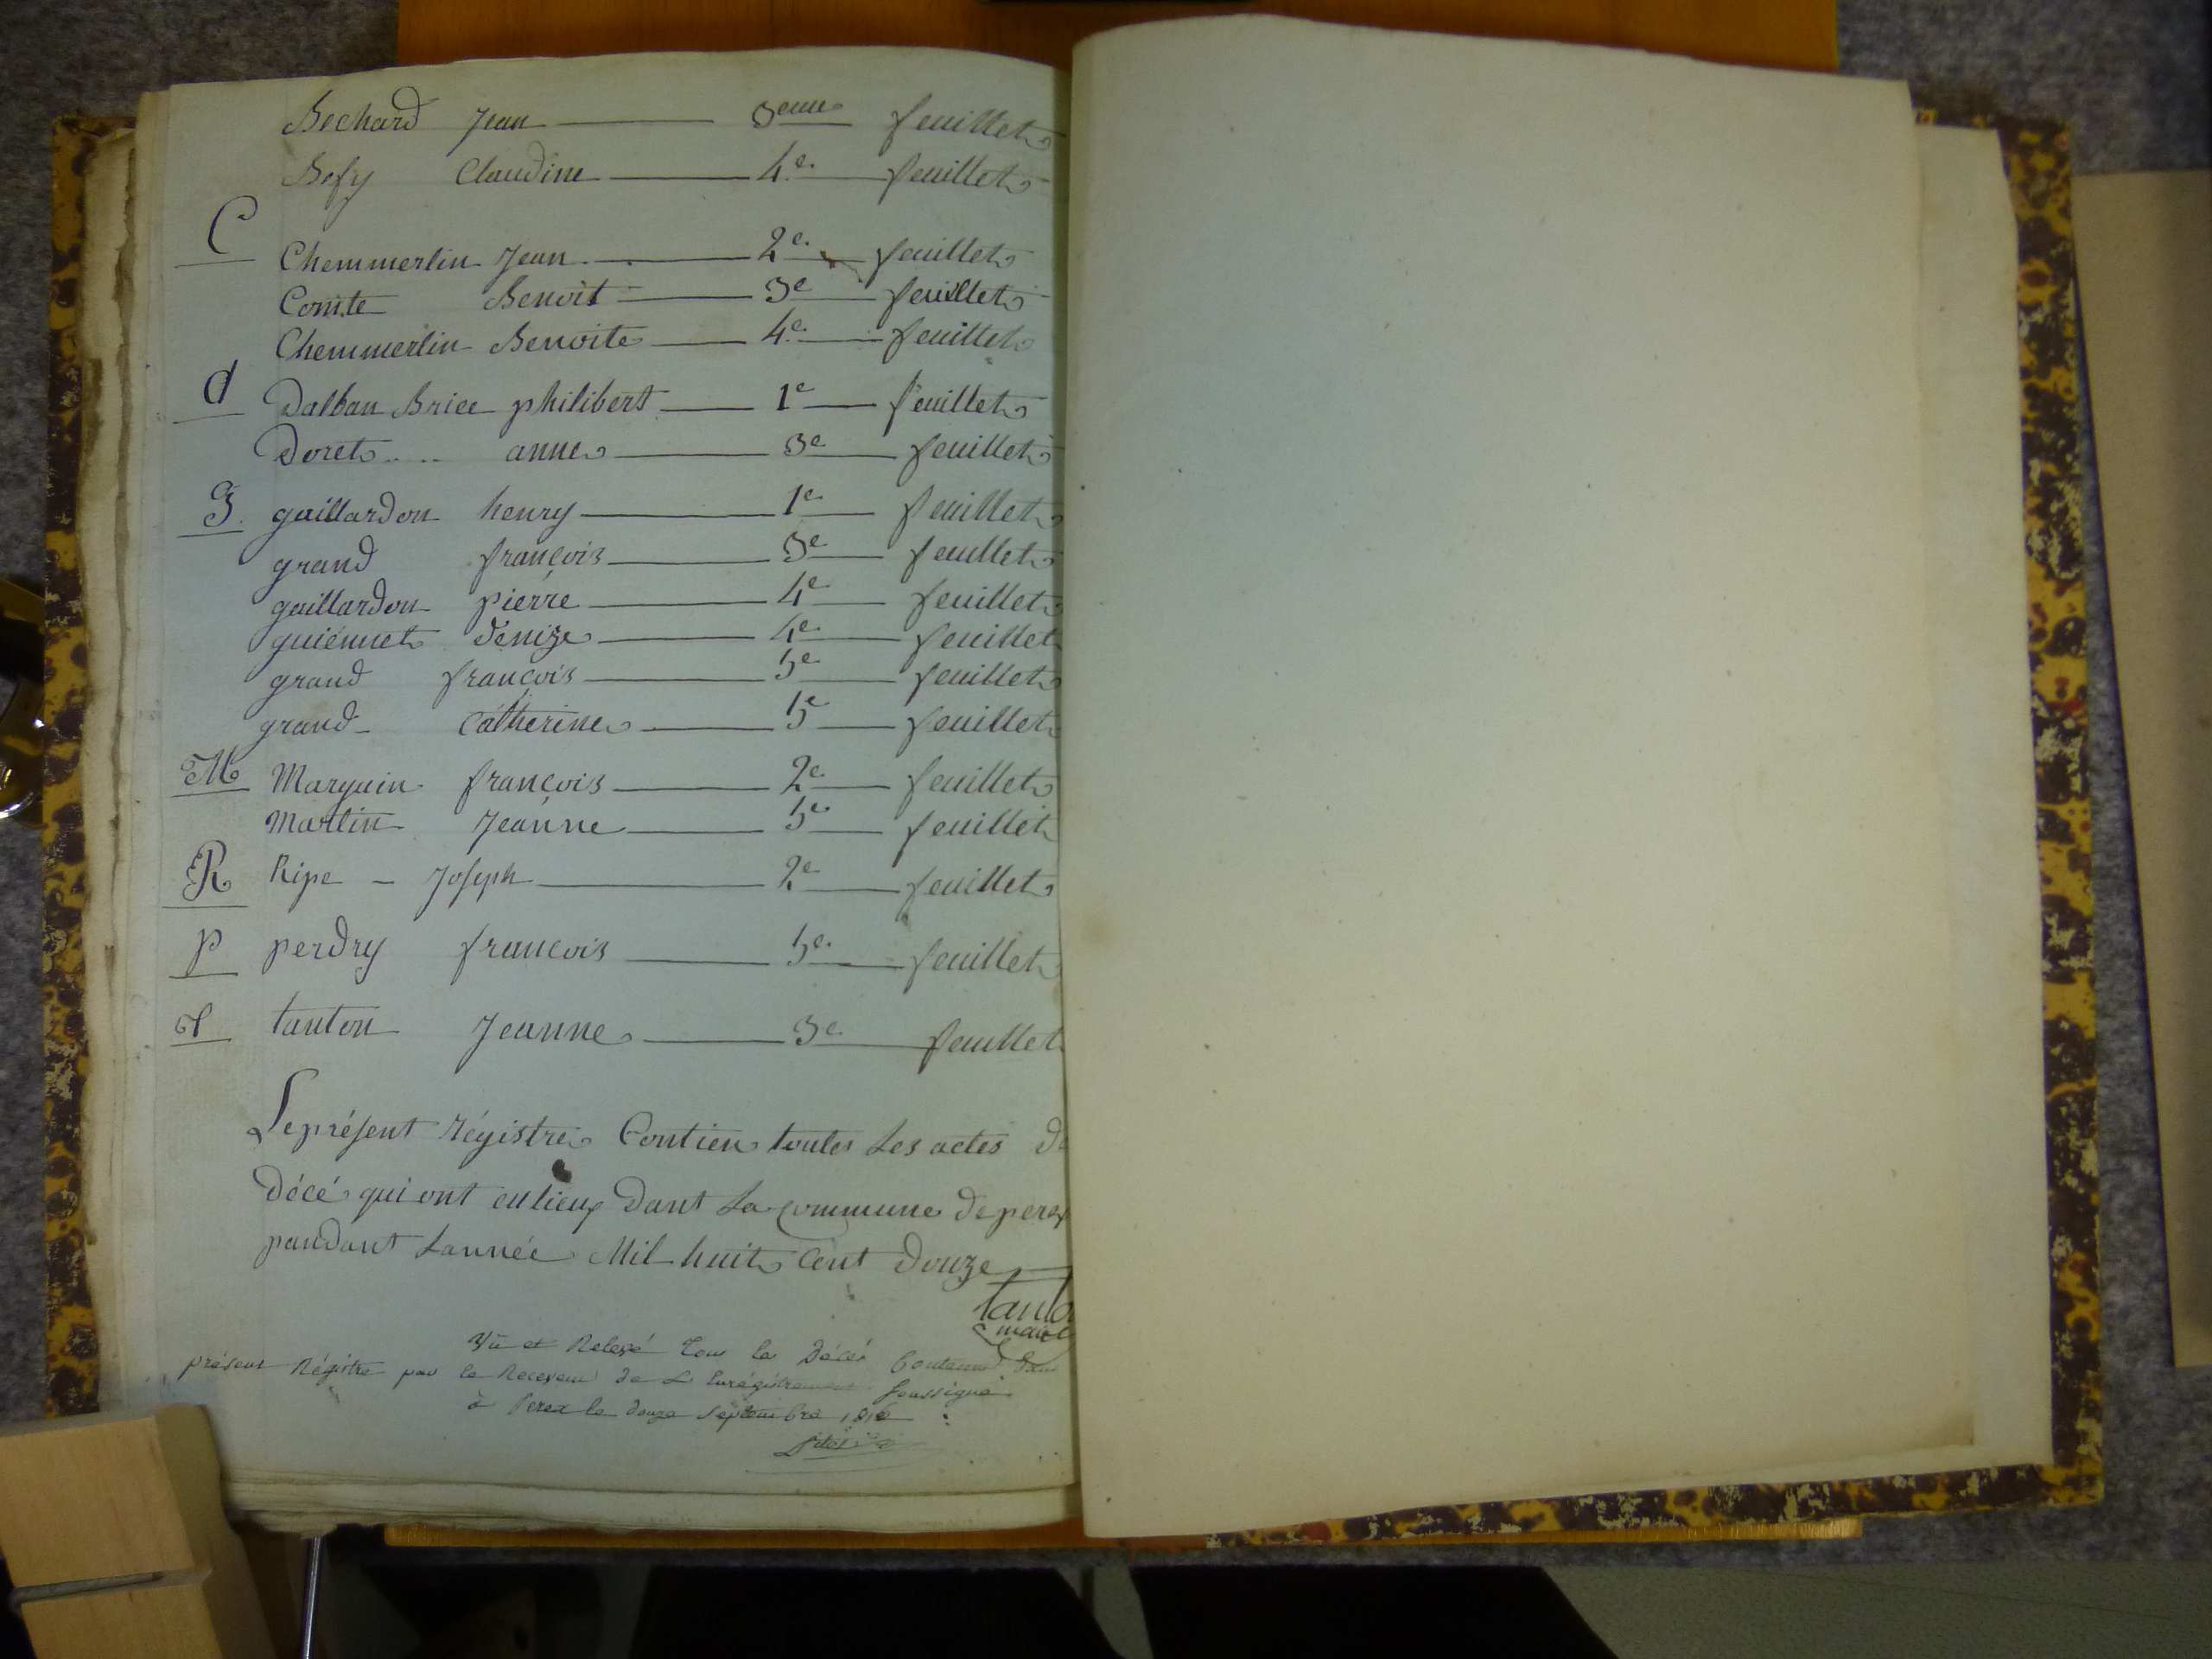 Bechard Jean 3eme feuillet
Befy Claudine 4e feuillet
C Chemmerlin Jean 2e feuillet
Comte Benoit 3e feuillet
Chemmerlin Benoite 4e feuillet
d Dalban Brice philibert 1e feuillet
Doret anne 3e feuillet
G guillardon henry 1e feuillet
grand françois 3e feuillet
guillardon pierre 4e feuillet
guiénnet denize 4e feuillet
grand françois 5e feuillet
grand Catherine 5e feuillet
M Marguin françois 2e feuillet
Martin Jeanne 5e feuillet
R Ripe Joseph 2e feuillet
p perdry francois 5e feuillet
T tanton Jeanne 3e feuillet
Le présent régistre Contien toutes Les actes de
décé qui ont eu lieux dant La Commune de perex
pandant Lannée Mil huit Cent douze
maire
Vû et Relevé Tous les Décés Contenus dans
présent Régistre par le Receveur de L'Enrégistrement soussigné
à Perex le douze Septembre 1816